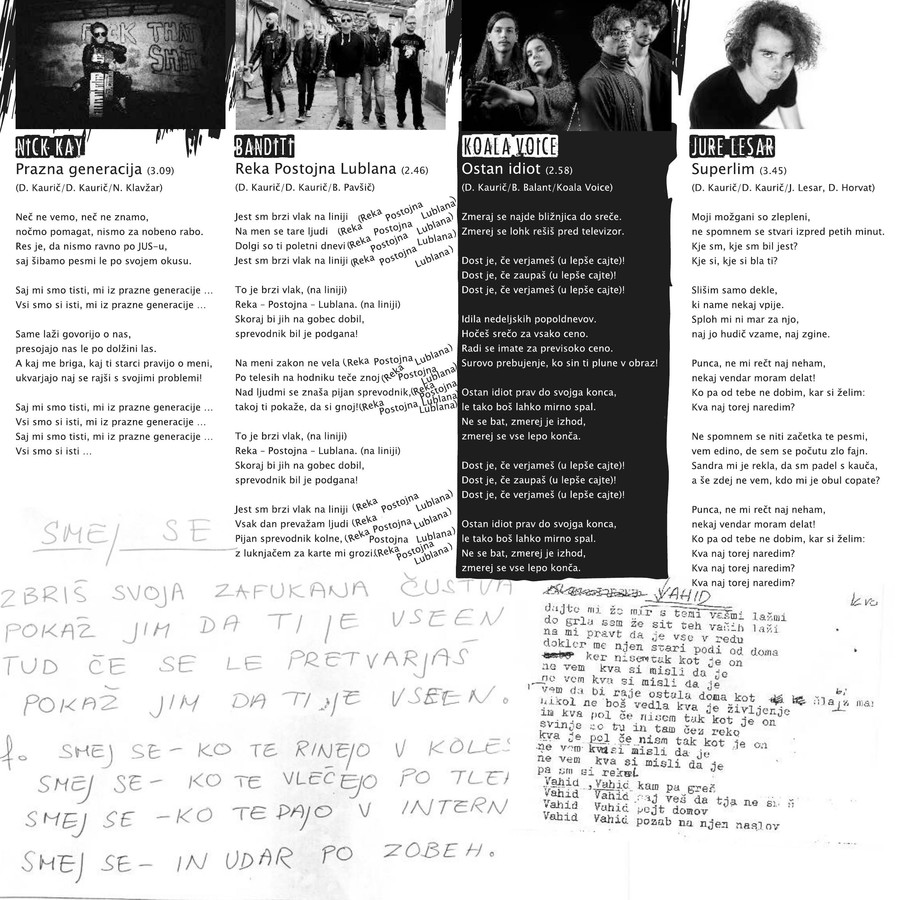 NICK KAY
Prazna generacija (3.09)
(D. Kaurič/D. Kaurič/N. Klavžar)
Neč ne vemo, neč ne znamo,
nočmo pomagat, nismo za nobeno rabo.
Res je, da nismo ravno po JUS-u,
saj šibamo pesmi le po svojem okusu.
Saj mi smo tisti, mi iz prazne generacije ...
Vsi smo si isti, mi iz prazne generacije ...
Same laži govorijo o nas,
presojajo nas le po dolžini las.
A kaj me briga, kaj ti starci pravijo o meni,
ukvarjajo naj se rajši s svojimi problemi!
Saj mi smo tisti, mi iz prazne generacije ...
Vsi smo si isti, mi iz prazne generacije ...
Saj mi smo tisti, mi iz prazne generacije ...
Vsi smo si isti ...
BANDITI
Reka Postojna Lublana (2.46)
(D. Kaurič/D. Kaurič/B. Pavšič)
Jest sm brzi vlak na liniji (Reka Postojna Lublana)
Na men se tare ljudi (Reka Postojna Lublana)
Dolgi so ti poletni dnevi (Reka Postojna Lublana)
Jest sm brzi vlak na liniji (Reka Postojna Lublana)
To je brzi vlak, (na liniji)
Reka – Postojna – Lublana. (na liniji)
Skoraj bi jih na gobec dobil,
sprevodnik bil je podgana!
Na meni zakon ne vela (Reka Postojna Lublana)
Po telesih na hodniku teče znoj (Reka Postojna Lublana)
Nad ljudmi se znaša pijan sprevodnik, (Reka Postojna Lublana)
takoj ti pokaže, da si gnoj! (Reka Postojna Lublana)
To je brzi vlak, (na liniji)
Reka – Postojna – Lublana. (na liniji)
Skoraj bi jih na gobec dobil,
sprevodnik bil je podgana!
Jest sm brzi vlak na liniji (Reka Postojna Lublana)
Vsak dan prevažam ljudi (Reka Postojna Lublana)
Pijan sprevodnik kolne, (Reka Postojna Lublana)
z luknjačem za karte mi grozi. (Reka Postojna Lublana)
KOALA VOICE
Ostan idiot (2.58)
(D. Kaurič/B. Balant/Koala Voice)
Zmeraj se najde bližnjica do sreče.
Zmerej se lohk rešiš pred televizor.
Dost je, če verjameš (u lepše cajte)!
Dost je, če zaupaš (u lepše cajte)!
Dost je, če verjameš (u lepše cajte)!
Idila nedeljskih popoldnevov.
Hočeš srečo za vsako ceno.
Radi se imate za previsoko ceno.
Surovo prebujenje, ko sin ti plune v obraz!
Ostan idiot prav do svojga konca,
le tako boš lahko mirno spal.
Ne se bat, zmerej je izhod,
zmerej se vse lepo konča.
Dost je, če verjameš (u lepše cajte)!
Dost je, če zaupaš (u lepše cajte)!
Dost je, če verjameš (u lepše cajte)!
Ostan idiot prav do svojga konca,
le tako boš lahko mirno spal.
Ne se bat, zmerej je izhod,
zmerej se vse lepo konča.
JURE LESAR
Superlim (3.45)
(D. Kaurič/D. Kaurič/J. Lesar, D. Horvat)
Moji možgani so zlepleni,
ne spomnem se stvari izpred petih minut.
Kje sm, kje sm bil jest?
Kje si, kje si bla ti?
Slišim samo dekle,
ki name nekaj vpije.
Sploh mi ni mar za njo,
naj jo hudič vzame, naj zgine.
Punca, ne mi rečt naj neham,
nekaj vendar moram delat!
Ko pa od tebe ne dobim, kar si želim:
Kva naj torej naredim?
Ne spomnem se niti začetka te pesmi,
vem edino, de sem se počutu zlo fajn.
Sandra mi je rekla, da sm padel s kauča,
a še zdej ne vem, kdo mi je obul copate?
Punca, ne mi rečt naj neham,
nekaj vendar moram delat!
Ko pa od tebe ne dobim, kar si želim:
Kva naj torej naredim?
Kva naj torej naredim?
Kva naj torej naredim?
SMEJ SE
ZBRIŠ SVOJA ZAFUKANA ČUSTVA
POKAŽ JIM DA TI JE VSEEN
TUD ČE SE LE PRETVARJAŠ
POKAŽ JIM DA TI JE VSEEN.
f. SMEJ SE – KO TE RINEJO V KOLES
SMEJ SE – KO TE VLEČEJO PO TLEH
SMEJ SE – KO TE DAJO V INTERN
SMEJ SE – IN UDAR PO ZOBEH.
VAHID
dajte mi že mir s temi vašmi lažmi
do grla sem že sit teh vaših laži
na mi pravt da je vse v redu
dokler me njen stari podi od doma
ker nisem tak kot je on
ne vem kva si misli da je
ne vem kva si misli da je
vem da bi raje ostala doma kot
nikol ne boš vedla kva je življenje
in kva pol če nisem tak kot je on
svinje so tu in tam čez reko
kva je pol če nism tak kot je on
ne vem kva si misli da je
ne vem kva si misli da je
pa sm si rekel
Vahid, Vahid kam pa greš
Vahid Vahid saj veš da tja ne
Vahid Vahid pejt domov
Vahid Vahid pozab na njen naslov